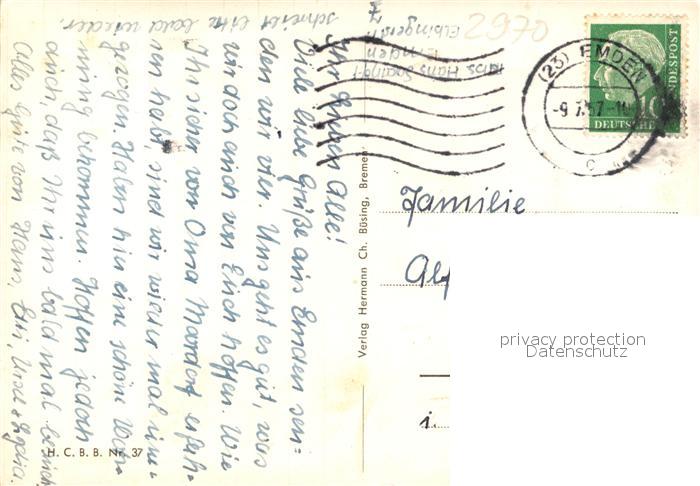 Ihr lieben Alle!
Viele liebe Grüße aus Emden sen=
den wir vier. Uns geht es gut, was
wir doch auch von Euch hoffen. Wie
Ihr sicher von Oma Mardorf erfah=
ren habt, sind wir wieder mal um=
gezogen. Haben hier eine schöne Woh=
nung bekommen. Hoffen jedoch
auch, daß Ihr uns bald mal besucht
Alles Gute von Hans, Uschi &
schreibt bitte bald wieder.
Abs. Hans
Emden
Elbingerstr.
7
2970
(23) EMDEN
-9.7.57-1
c
10
DEUTSCHE
NDESPOST
Familie
Alf
i.
Verlag Hermann Ch. Büsing, Bremen
H. C. B. B. Nr. 37
privacy protection
Datenschutz